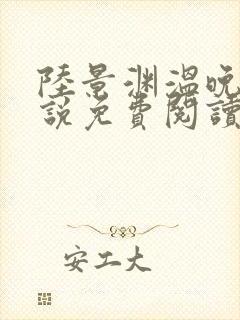 陸景渊溫晚
説免費閱讀
安工大